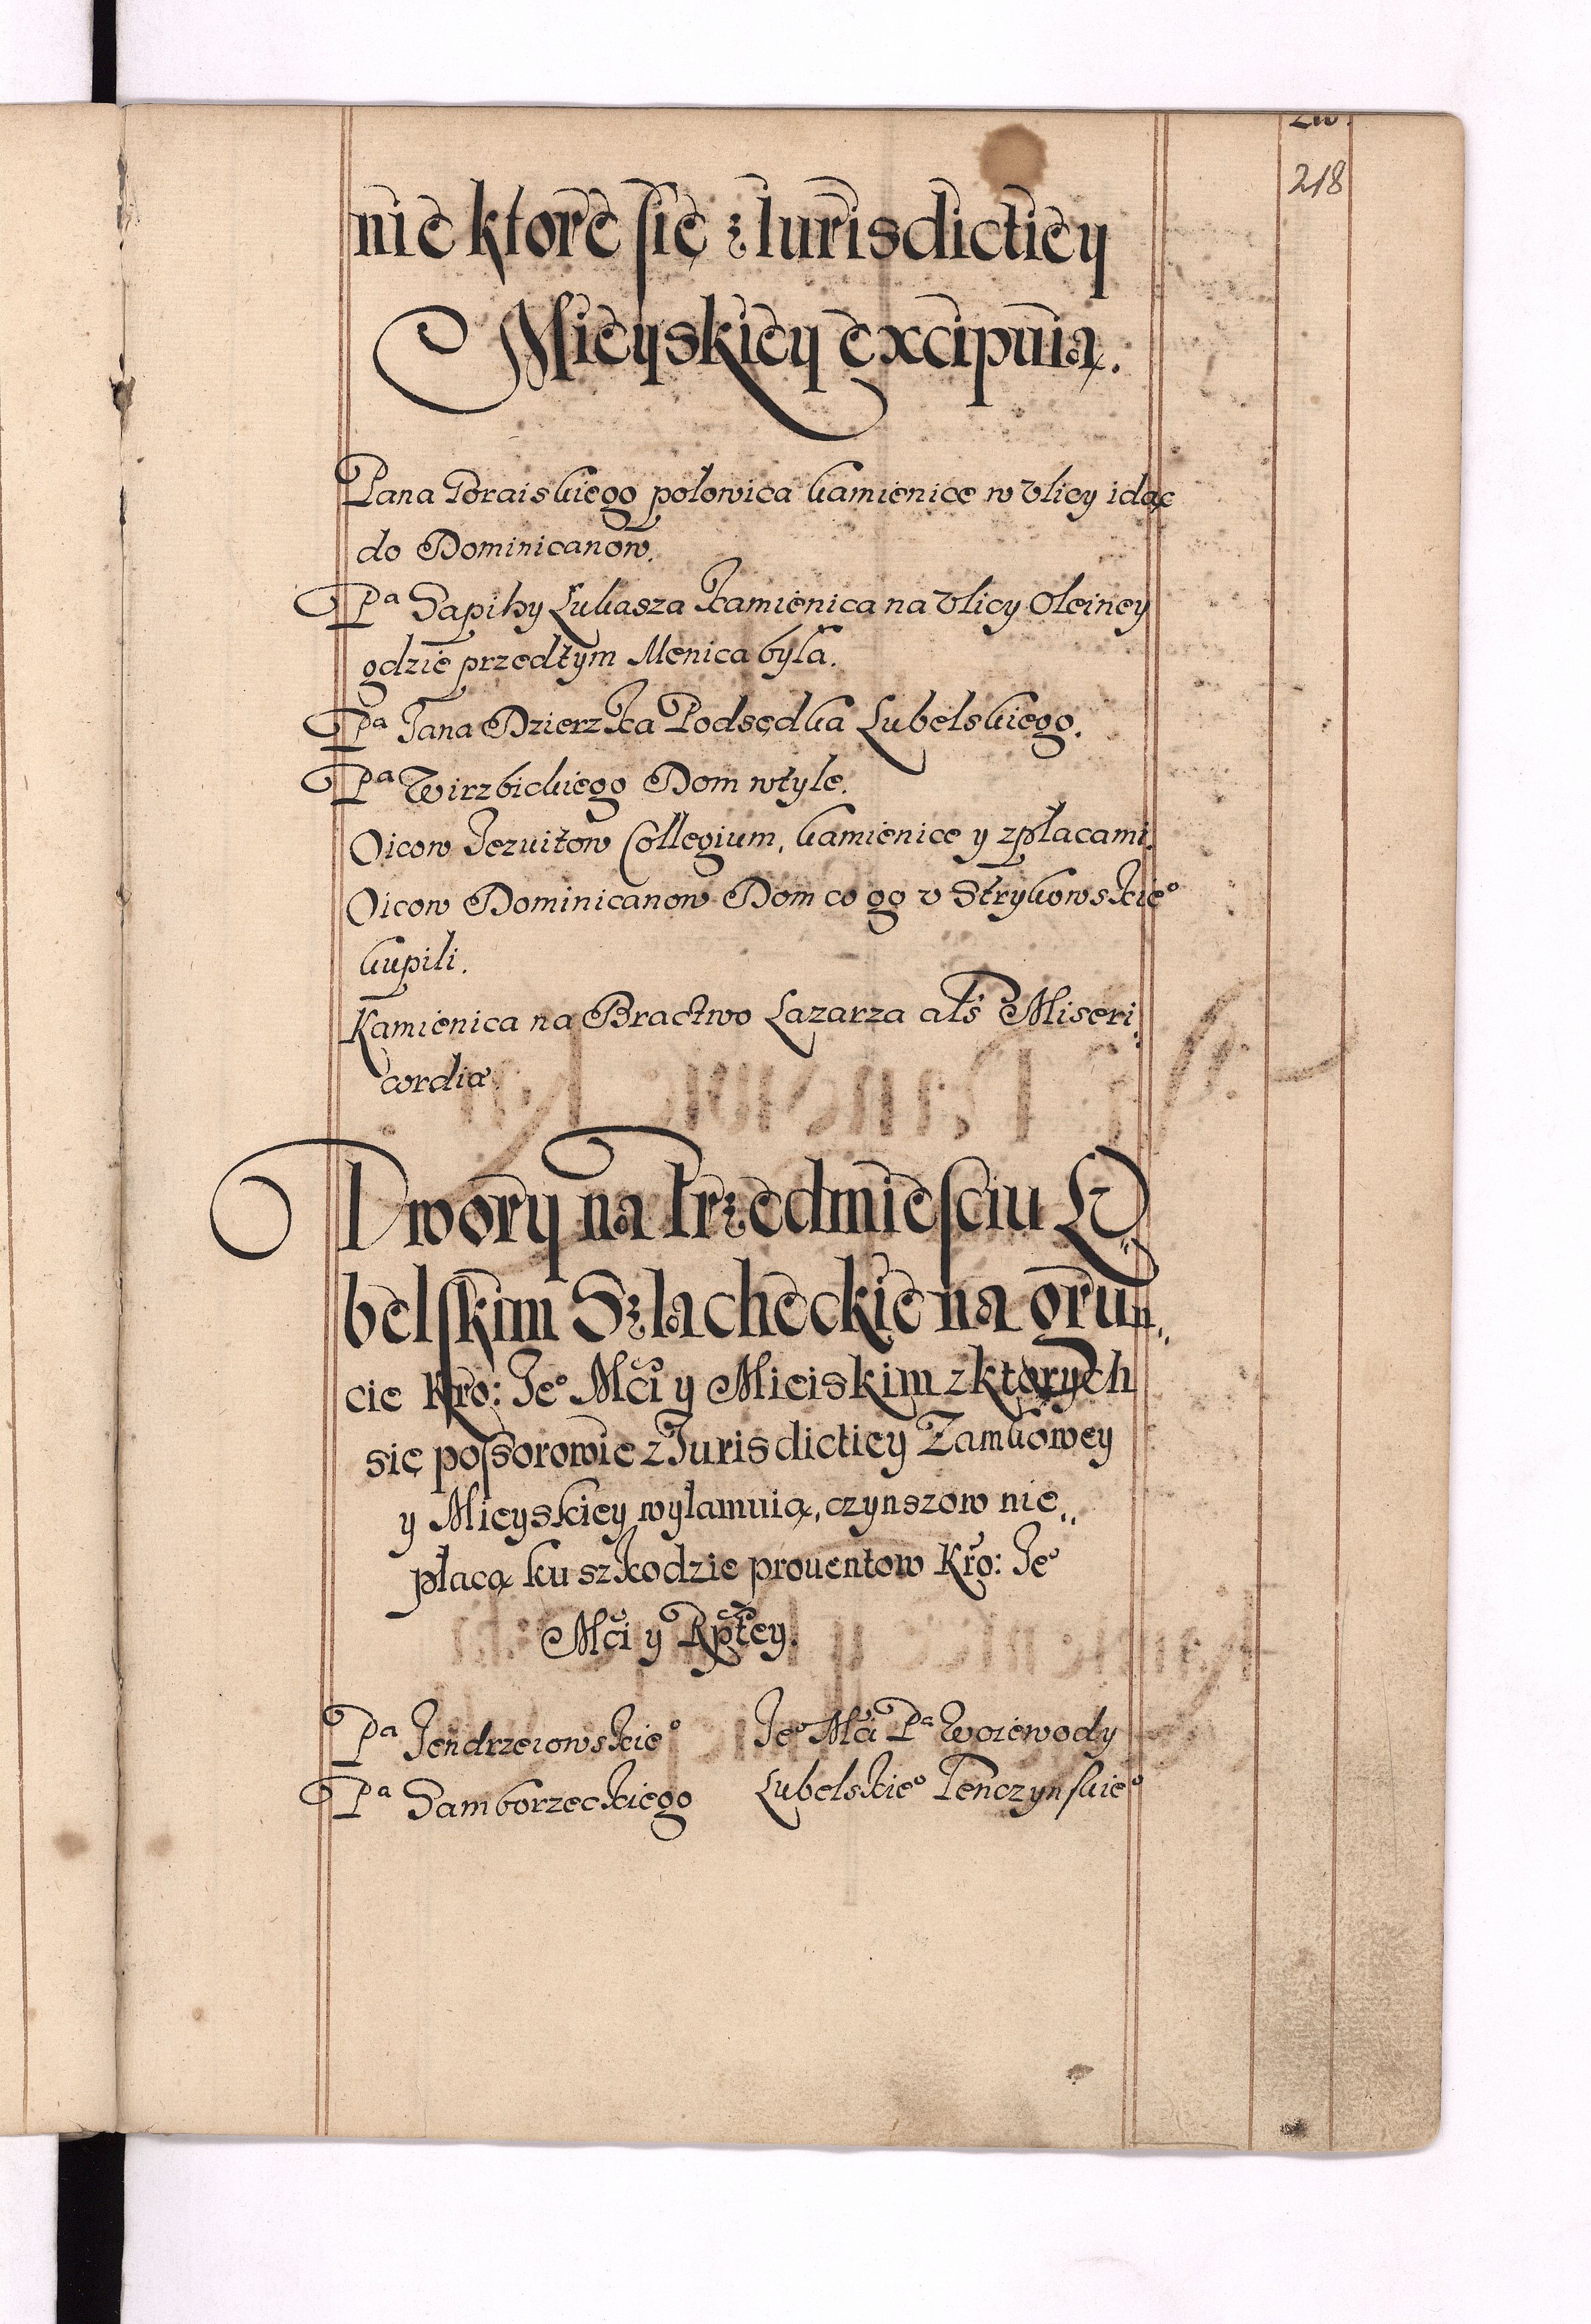 218
nie ktore się z Iurisdictiey
Mieyskiey excipuią.
Pana Poraiskiego połowica kamienice w Vlicy idąc
do Dominicanow.
Pa Sapihy Łukasza Kamienica na Vlicy Oleiney
gdzie przedtym Menica była.
Pa Jana Dzierzka Podsędka Lubelskiego.
Pa Wirzbickiego Dom wtyle.
Oicow Jezuitow Collegium, kamienice y zpłacami.
Oicow Dominicanow Dom co go v Strykowskieo
kupili.
Kamienica na Bractwo Lazarza als Miseri„
cordiæ.
Dwory na Przedmiesciu Lu„
belskim Szlacheckie na grun„
cie Kro: Jeo Mci y Mieiskim z ktorych
się possorowie z Jurisdictiey Zamkowey
y Mieyskiey wyłamuią, czynszow nie„
płacą ku szkodzie prouentow Kro: Jeo
Mci y Rptey.
Pa Jendrzeiowskieo Jeo Mci Pa Woiewody
Pa Samborzeckiego Lubelskieo Tenczynskieo